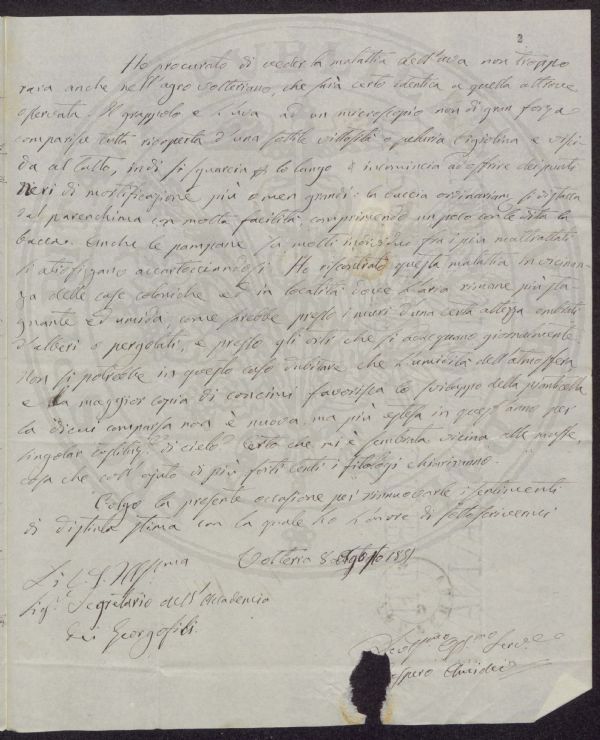 2
Ho procurato di veder la malattia dell'uva non troppo
rara anche nell'agro volterrano, che sarà certo identica a quella altrove
osservata. Il grappolo e l'uva ad un microscopio non di gran forza
comparisce tutta ricoperta d'una sottile villosità o peluria e
da al tatto, indi si squarcia per lo lungo e incomincia ad offrire dei punti
neri di mortificazione più o men grandi: la buccia ordinariam. si distacca
dal parenchima con molta facilità comprimendo un poco con le dita la
bacca. Anche le pampane in molti individui fra i più maltrattati
si accartocciandosi. Ho riscontrato questa malattia in vicinan-
za delle case coloniche e in località dove l'aria rimane più sta-
gnante ed umida, come sarebbe presso i muri d'una certa altezza
d'alberi o pergolati, e presso gli orti che si adacquano giornalmente
Non si potrebbe in questo caso dubitare che l'umidità dell'atmosfera
e la maggior copia di concimi favorisca lo sviluppo della
la di cui comparsa non è nuova, ma più estesa in quest'anno per
singolar di cielo? Certo che mi è sembrata vicina alle muffe,
cosa che coll'ajuto di più forti lenti i fitologi chiariranno.
Colgo la presente occasione per rinnuovarle i sentimenti
di distinta stima con la quale ho l'onore di sottoscrivermi
Volterra 8 Agosto 1851
Di V. S. Ill.ma
Sig. Segretario dell'Accademia
dei Georgofili.
Dev.mo Serv.e